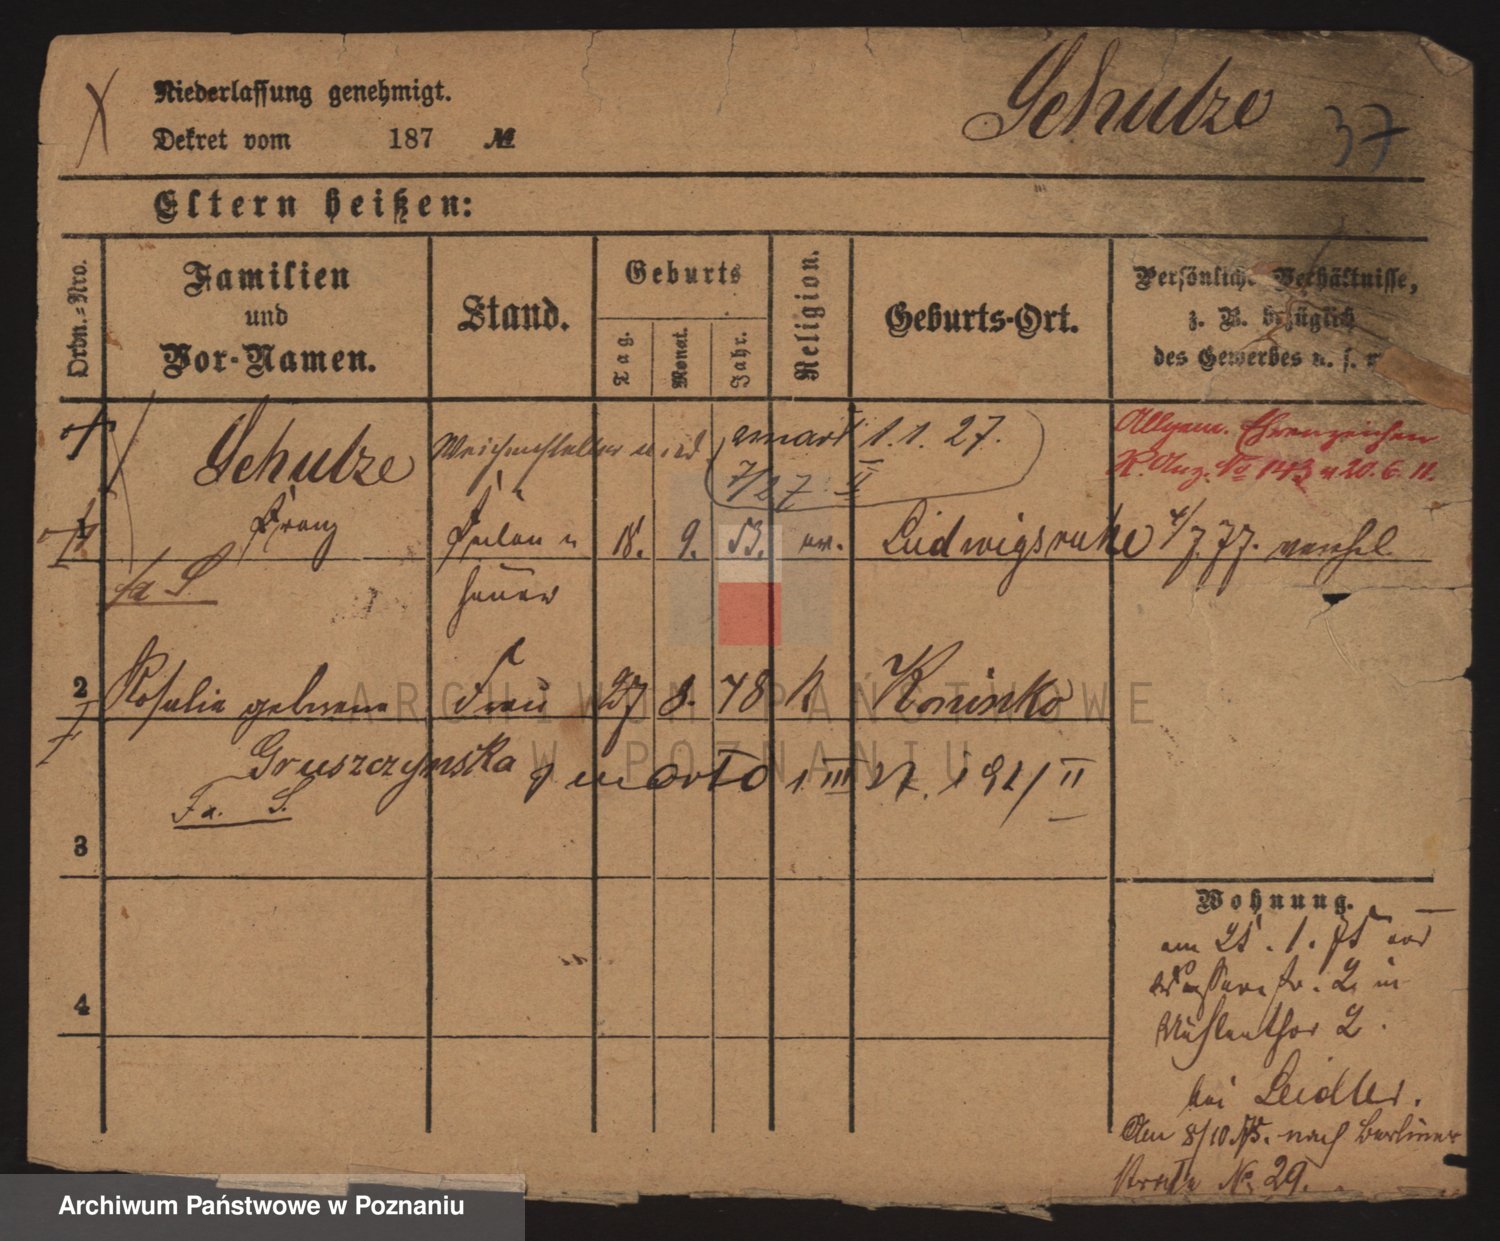 Niederlassung genehmigt.
Dekret vom 187 №
Schulze 37
Eltern heißen:
Ordn.-Nro.
Familien
und
Vor-Namen.
Stand.
Geburts
Tag.
Monat.
Jahr.
Religion.
Geburts-Ort.
Persönliche Verhältnisse,
z. B. bezüglich
des Gewerbes u. s. w.
Schulze
1.1.27.
7/27 II
Allgem. Ehrenzeichen
R. Anz. No 143 v 20. 6. 11.
1 Franz
Feilen
18. 9. 53. ev. Ludwigsruhe 4/7.77.
hauer
Fa S.
2 Rosalie geborene Frau 27 8. 48 k Kninko
Gruszczynska
marto 1 III 27. 1921 II
Fa. S.
3
4
Wohnung.
am 25. 1. 75
2 in
Mühlenthor 2.
bei Leidler.
Am 8/10.75. nach Berliner
Straße No 29.
ARCHIWUM PAŃSTWOWE
W POZNANIU
Archiwum Państwowe w Poznaniu